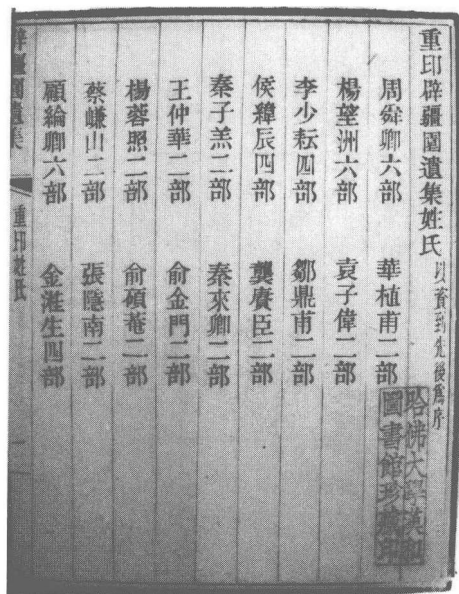 重印辟疆園遺集姓氏 以資到先後為序
周舜卿六部 華植甫二部
楊望洲六部 袁子偉二部
李少耘四部 鄒鼎甫二部
侯緯辰四部 龔賡臣二部
秦子羔二部 秦來卿二部
王仲華二部 俞金門二部
楊蓉照二部 俞碩菴二部
蔡嵰山二部 張隱南二部
顧綸卿六部 金漄生四部
辟疆園遺集 重印姓氏
哈佛大學漢和
圖書館珍藏印